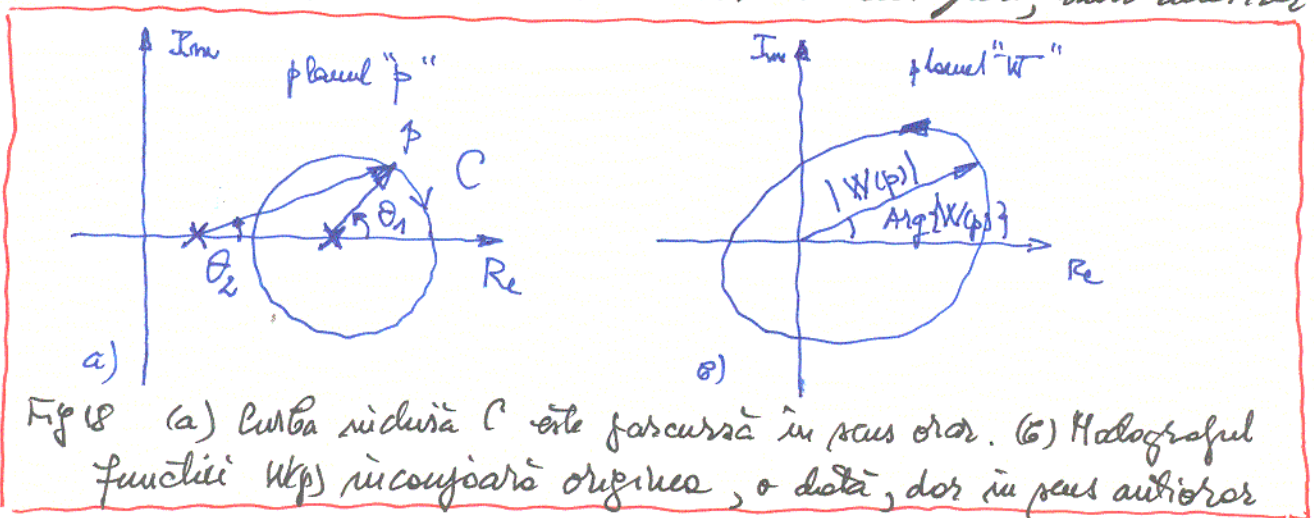 Im
planul "p"
p
C
θ1
θ2
Re
a)
Im
planul "W"
|W(p)|
Arg{W(p)}
Re
b)
Fig 18 (a) Curba închisă C este parcursă în sens orar. (b) Hodograful
funcției W(p) înconjoară originea, o dată, dar în sens antiorar